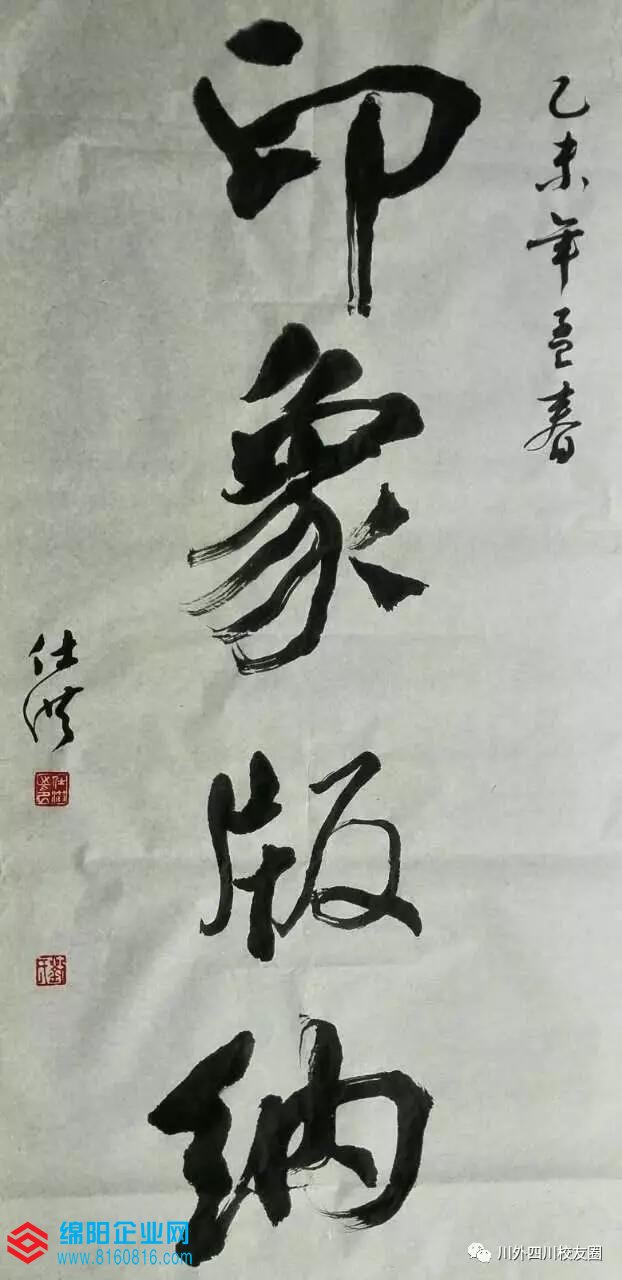 乙未年孟春
印象版纳
仕洪
绵阳企业网
www.8160816.com
川外四川校友圈